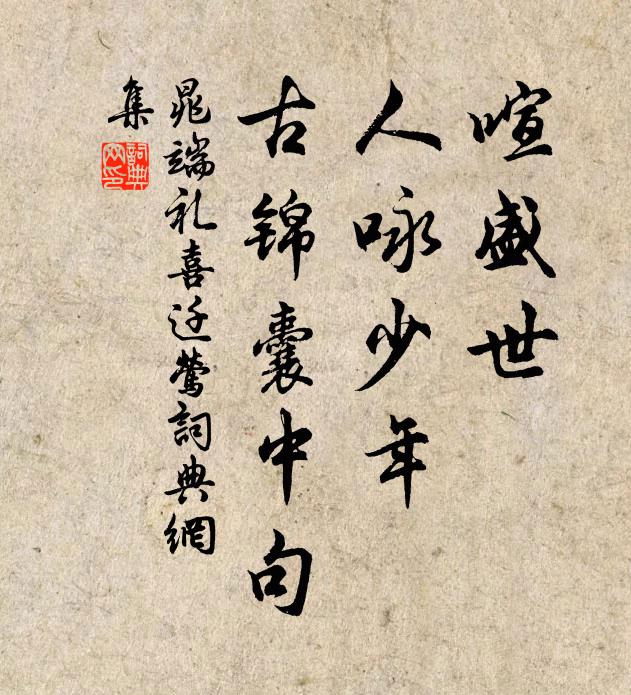 喧盛世
人咏少年
古锦囊中句
晁端礼喜迁莺詞典網
集
詞典
网印